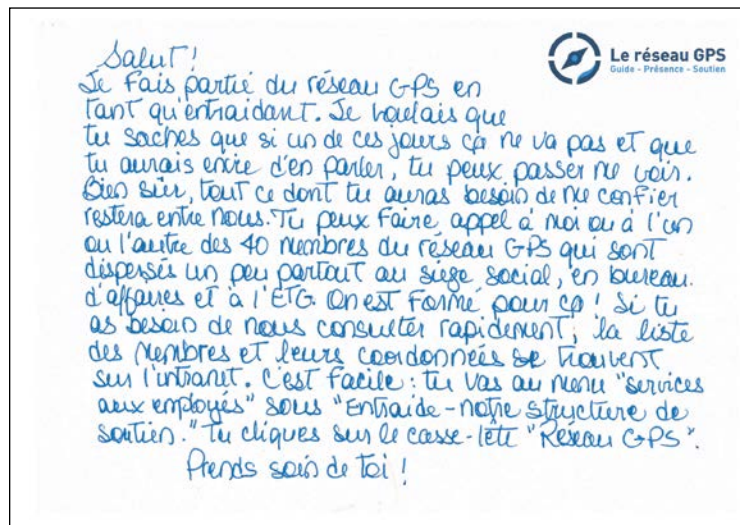 Le réseau GPS
Guide - Présence - Soutien
Salut!
Je fais partie du réseau GPS en
tant qu'entraidant. Je voulais que
tu saches que si un de ces jours ça ne va pas et que
tu aurais envie d'en parler, tu peux passer me voir.
Bien sûr, tout ce dont tu auras besoin de me confier
restera entre nous. Tu peux faire appel à moi ou à l'un
ou l'autre des 40 membres du réseau GPS qui sont
dispersés un peu partout au siège social, en bureau
d'affaires et à l'ETG. On est formé pour ça! Si tu
as besoin de nous consulter rapidement, la liste
des membres et leurs coordonnées se trouvent
sur l'intranet. C'est facile : tu vas au menu "services
aux employés" sous "Entraide - notre structure de
soutien." Tu cliques sur le casse-tête "Réseau GPS".
Prends soin de toi!